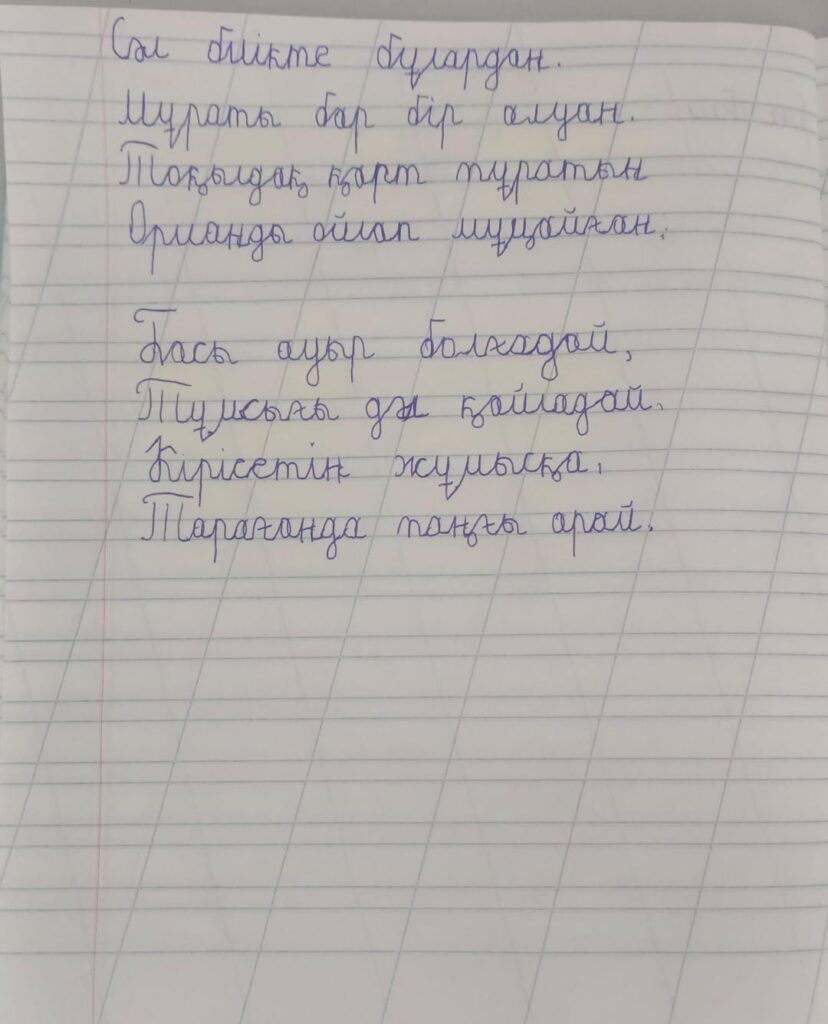 Сәл биікте бұлардан.
Мұраты бар бір алуан.
Тоқылдақ қарт тұратын
Орманды ойлап мұңайған.

Басы ауыр балғадай,
Тұмсығы дәл қайладай.
Кірісетін жұмысқа,
Тарағанда таңғы арай.